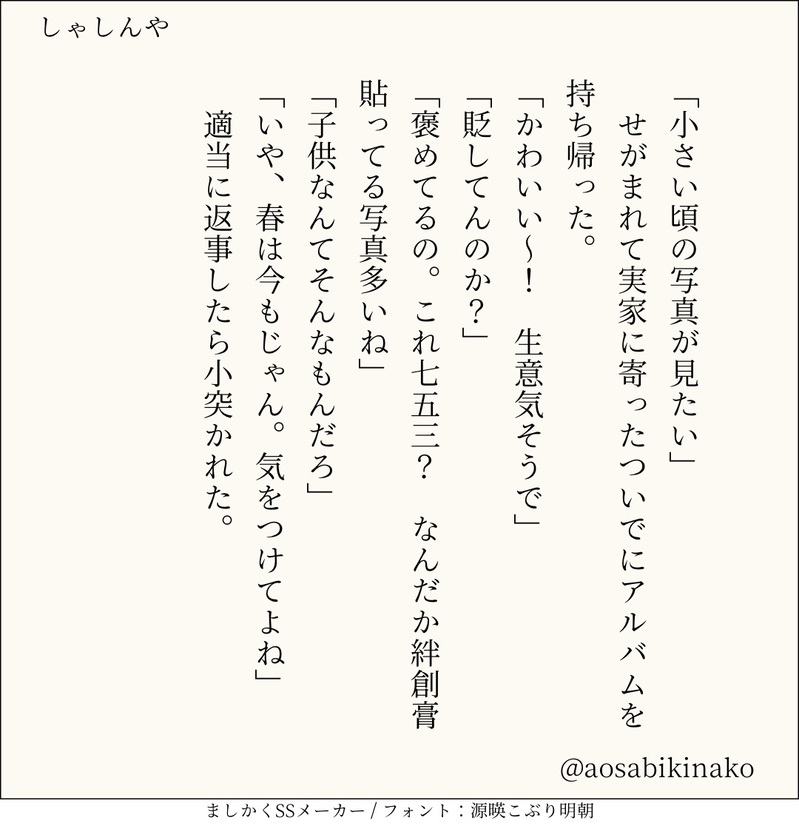 しゃしんや
「小さい頃の写真が見たい」
　せがまれて実家に寄ったついでにアルバムを
持ち帰った。
「かわいい〜！　生意気そうで」
「貶してんのか？」
「褒めてるの。これ七五三？　なんだか絆創膏
貼ってる写真多いね」
「子供なんてそんなもんだろ」
「いや、春は今もじゃん。気をつけてよね」
　適当に返事したら小突かれた。
@aosabikinako
ましかくSSメーカー / フォント：源暎こぶり明朝